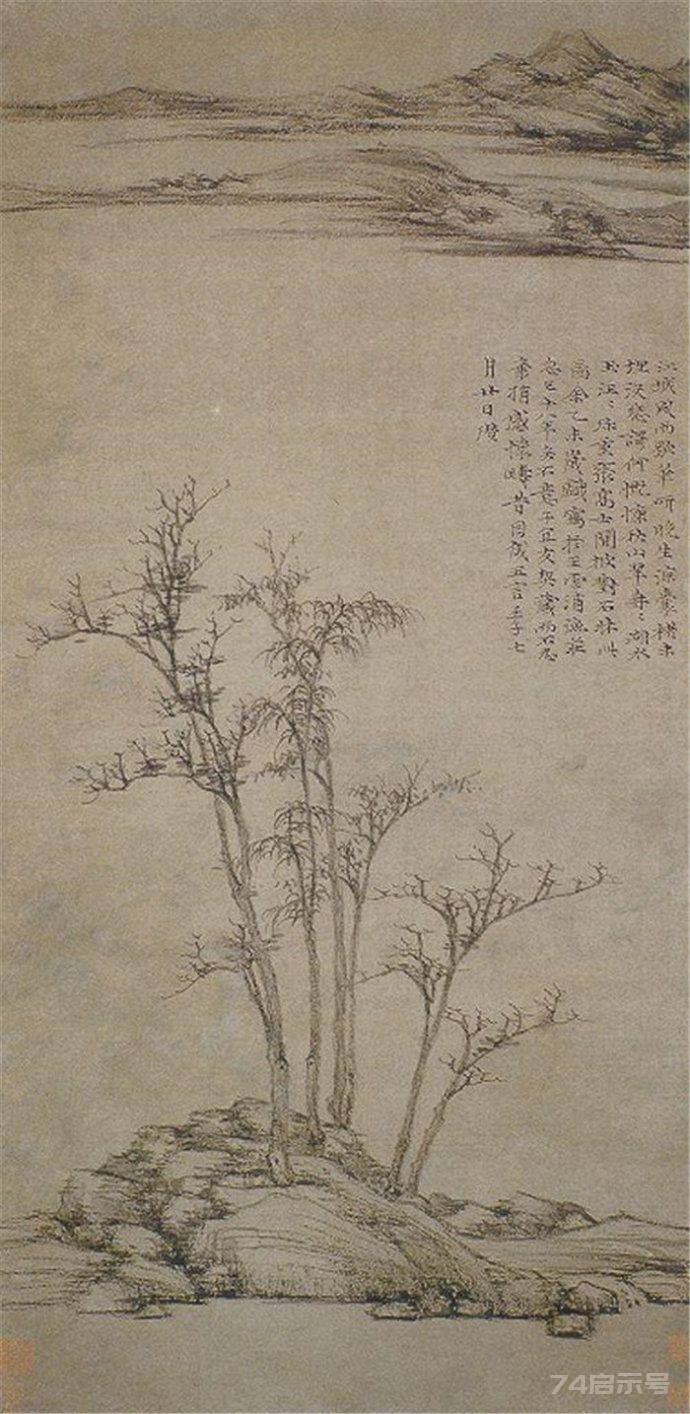 江城風雨歇筆研晚生涼囊楮未
埋沒悲謌何慨慷秋山翠冉〻湖水
玉汪〻珍重張高士閒披對石牀此
圖余乙未歲戲寫於王雲浦漁莊
忽已十八年矣不意子宜友契藏而不忍
棄捐感懷疇昔因成五言壬子七
月廿日瓚
74启示号